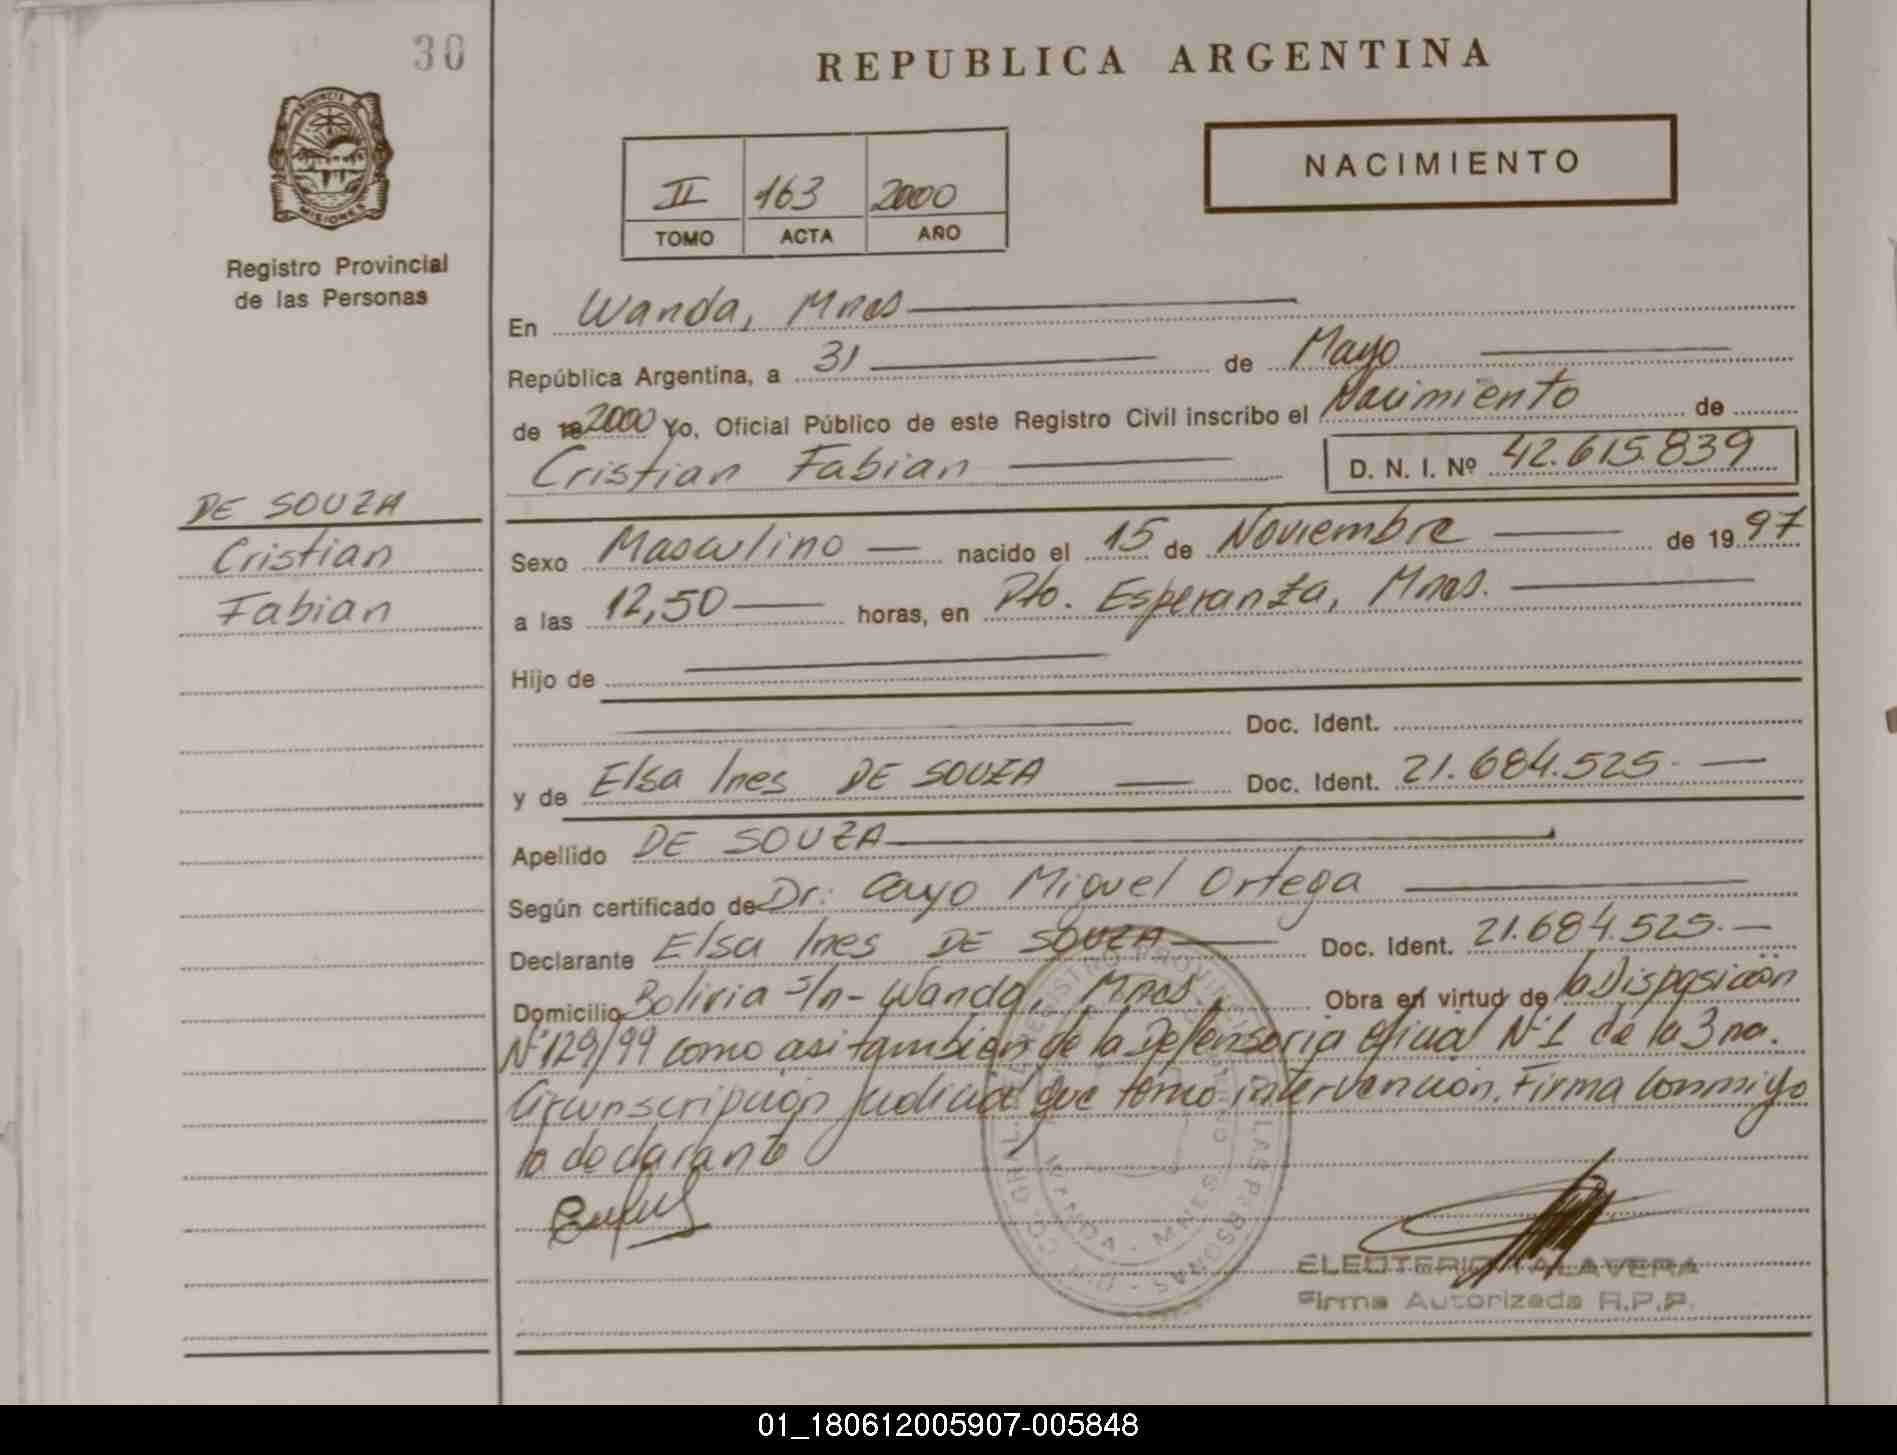 30
REPUBLICA ARGENTINA
NACIMIENTO
PROVINCIA DE
MISIONES
Registro Provincial
de las Personas
II 163 2000
TOMO ACTA AÑO
En Wanda, Mnes
República Argentina, a 31 de Mayo
de 19 2000 Yo, Oficial Público de este Registro Civil inscribo el Nacimiento de
Cristian Fabian D. N. I. Nº 42.615.839
DE SOUZA
Cristian
Fabian
Sexo Masculino nacido el 15 de Noviembre de 19 97
a las 12,50 horas, en Pto. Esperanza, Mnes.
Hijo de
Doc. Ident.
y de Elsa Ines DE SOUZA Doc. Ident. 21.684.525.
Apellido DE SOUZA
Según certificado de Dr. Cayo Miguel Ortega
Declarante Elsa Ines DE SOUZA Doc. Ident. 21.684.525.
Domicilio Bolivia S/n - Wanda, Mnes. Obra en virtud de la Disposición
Nº 129/99 como asi tambien de la Defensoria Oficial Nº 1 de la 3ra.
Circunscripción Judicial que tomo intervención. Firma conmigo
la declarante
ELEUTERIO TALAVERA
Firma Autorizada R.P.P.
01_180612005907-005848